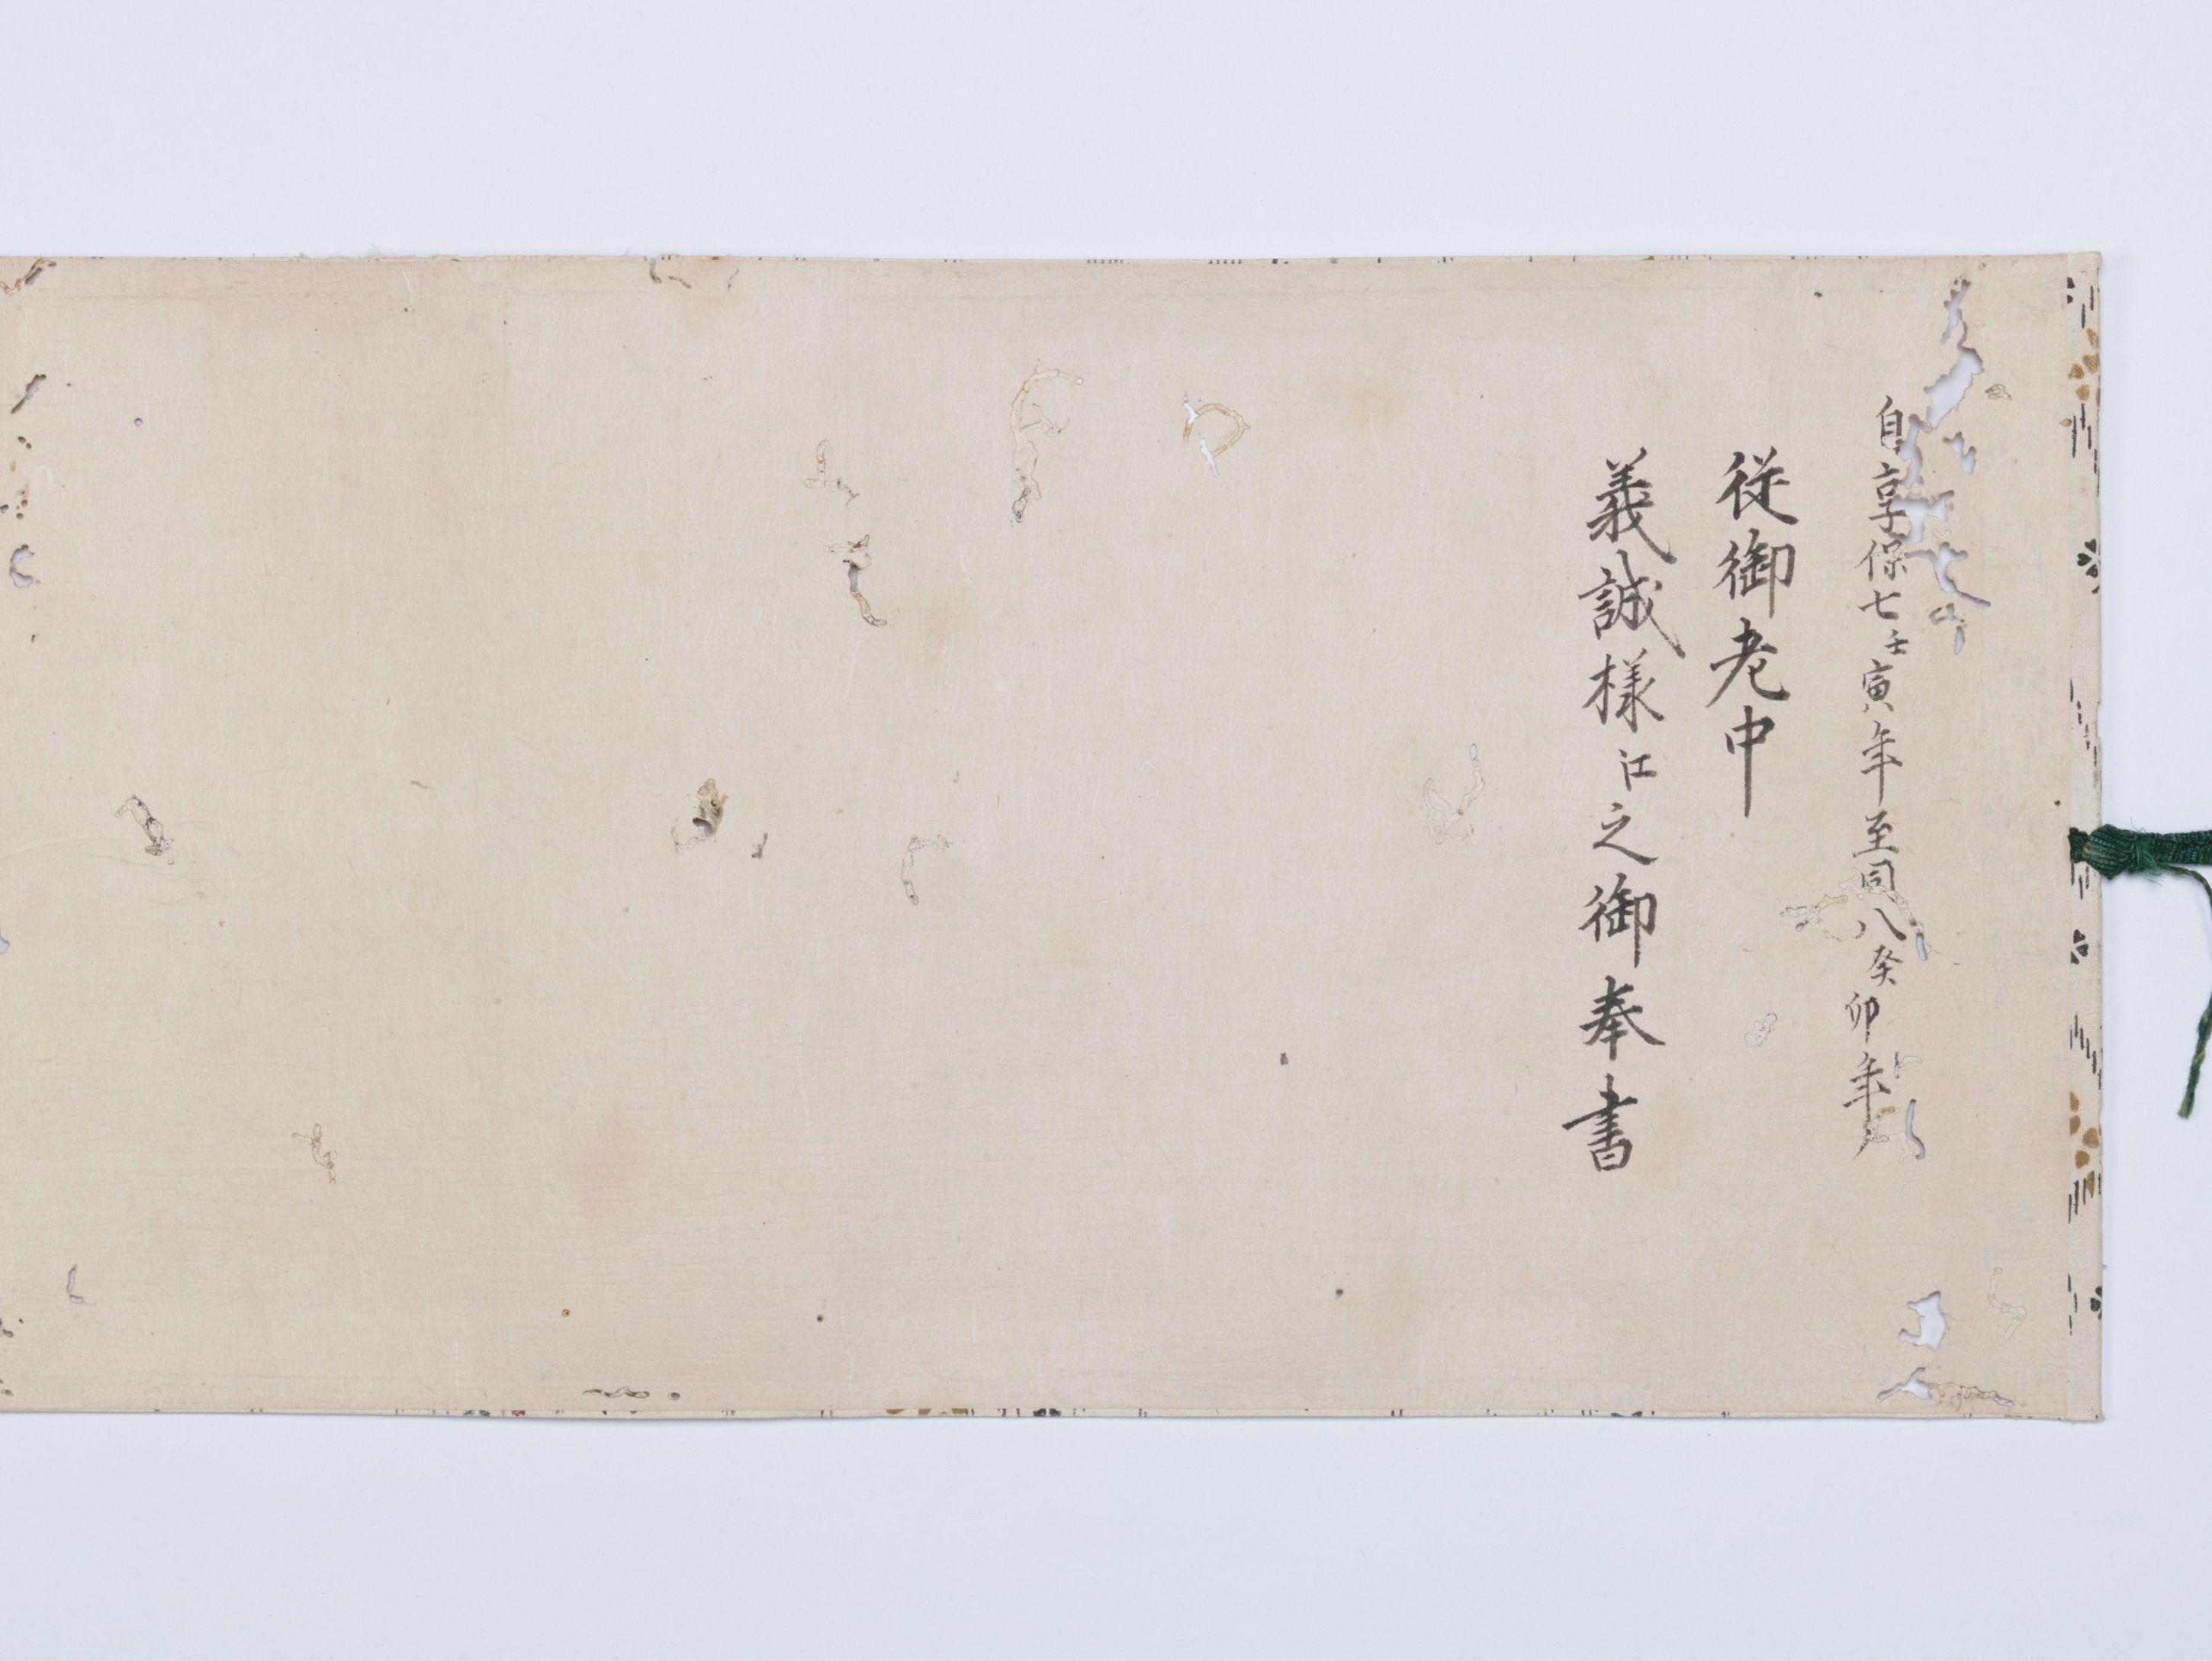 自享保七壬寅年至同八癸卯年
従御老中
義誠様江之御奉書